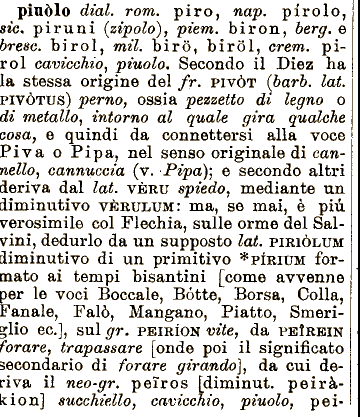 piuòlo dial. rom. piro, nap. pírolo,
sic. piruni (zipolo), piem. biron, berg. e
bresc. birol, mil. birö, biröl, crem. pi-
rol cavicchio, piuolo. Secondo il Diez ha
la stessa origine del fr. PIVÒT (barb. lat.
PIVÒTUS) perno, ossia pezzetto di legno o
di metallo, intorno al quale gira qualche
cosa, e quindi da connettersi alla voce
Piva o Pipa, nel senso originale di can-
nello, cannuccia (v. Pipa); e secondo altri
deriva dal lat. VÈRU spiedo, mediante un
diminutivo VÈRULUM: ma, se mai, è piú
verosimile col Flechia, sulle orme del Sal-
vini, dedurlo da un supposto lat. PIRIÒLUM
diminutivo di un primitivo *PÍRIUM for-
mato ai tempi bisantini [come avvenne
per le voci Boccale, Bótte, Borsa, Colla,
Fanale, Falò, Mangano, Piatto, Smeri-
glio ec.], sul gr. PEIRÍON vite, da PEÎREIN
forare, trapassare [onde poi il significato
secondario di forare girando], da cui de-
riva il neo-gr. peîros [diminut. peirà-
kion] succhiello, cavicchio, piuolo, pei-